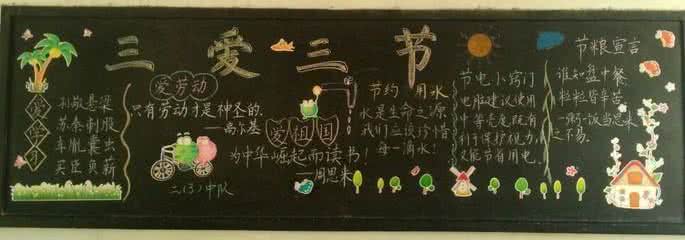 三爱三节
爱学习
孙敬悬梁
苏秦刺股
车胤囊虫
买臣负薪
爱劳动
只有劳动才是神圣的.
——高尔基
二(3)中队
爱祖国
为中华崛起而读书!
——周恩来
节约 用水
水是生命之源
我们应该珍惜
每一滴水!
节电小窍门
电脑建议使用
中等亮度既有
利于保护视力,
又能节省用电.
节粮宣言
谁知盘中餐
粒粒皆辛苦
一粥一饭当思来
之不易.